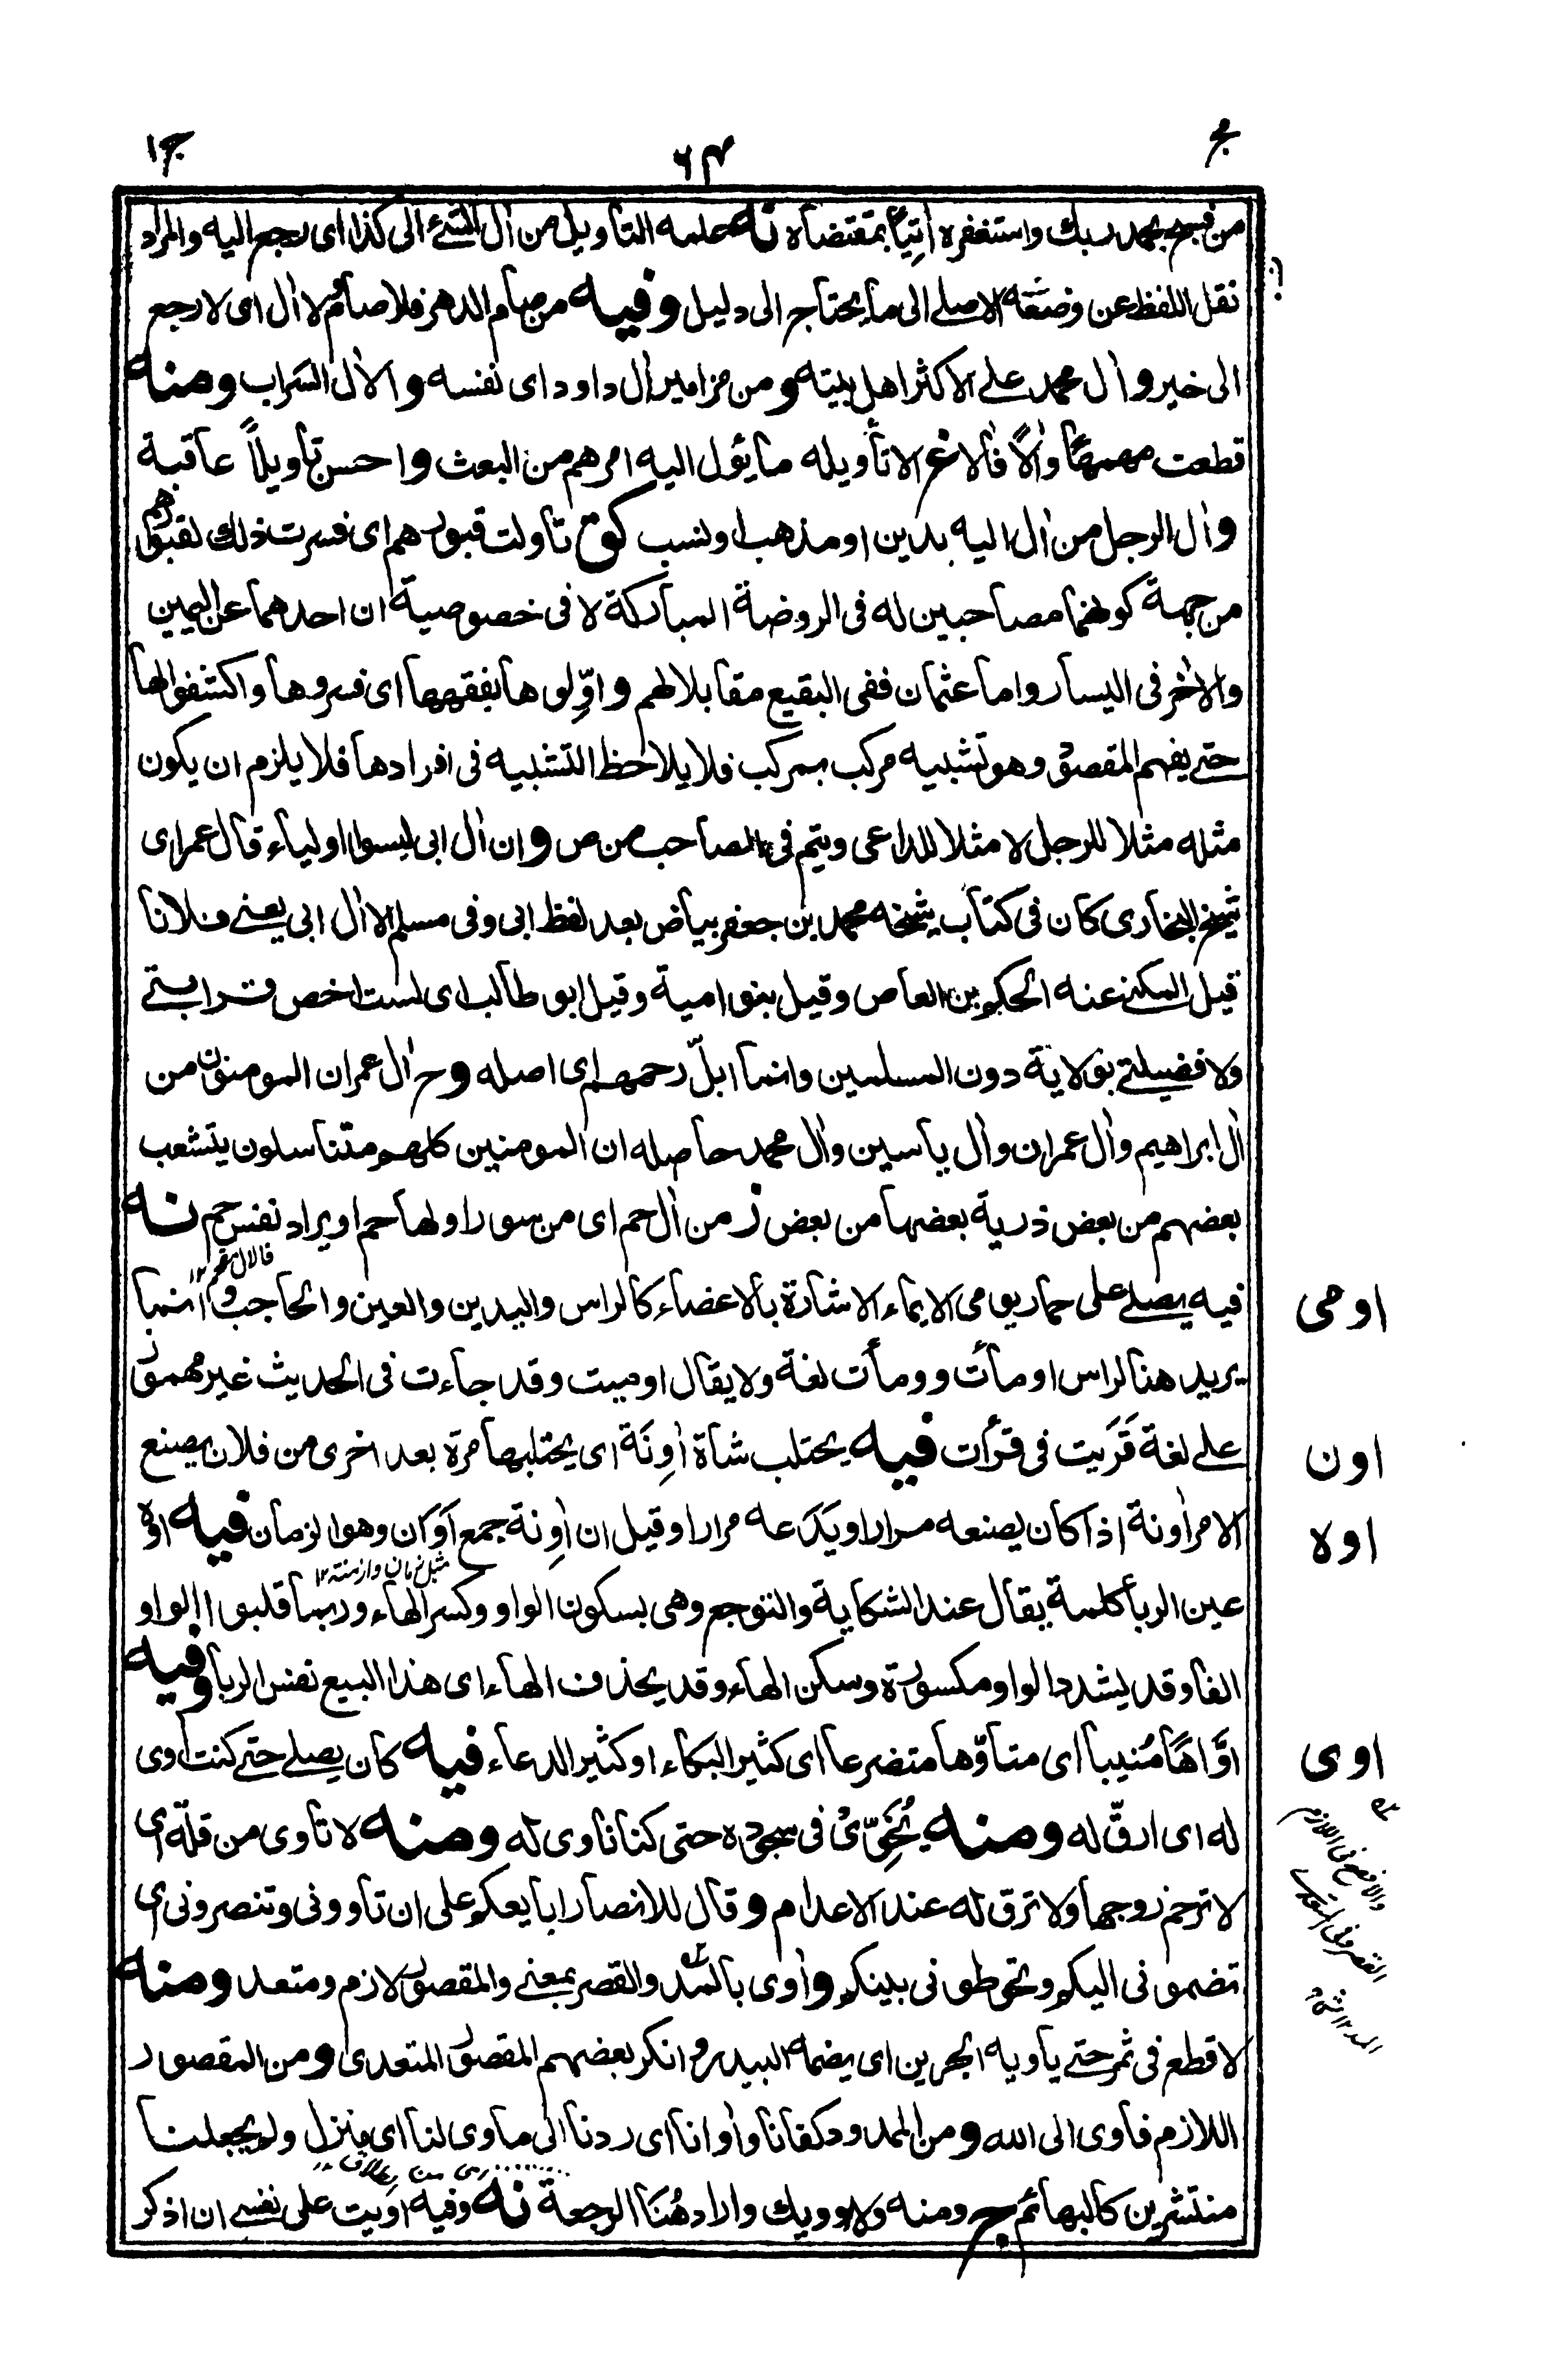 مج
٦٤
ج١
من فسبح بحمد ربك واستغفره اٰتِيًا بمقتضاه نه علمه التأويل من اٰل الشئ الى كذا اى رجع اليه والمراد
نقل اللفظ عن وضعه الاصلے الى ما يحتاج الى دليل وفيه من صام الدهر فلا صام ولا اٰل اى لا رجع
الى خير واٰل محمد علے الاكثر اهل بيته ومن مزامير اٰل داود اى نفسه والاٰل السَراب ومنه
قطعت مهمهًا واٰلاً فاٰلا غ الا تأويله ما يئول اليه امرهم من البعث واحسن تأويلاً عاقبة
واٰل الرجل من اٰل اليه بدين او مذهب او نسب ك تأولت قبورهم اى فسرت ذلك لقبورهم
من جهة كونهما مصاحبين له فى الروضة المباركة لا فى خصوصية ان احدهما عن اليمين
والاٰخر فى اليسار واما عثمان ففى البقيع مقابلا لهم واوِّلوها يفقهها اى فسروها واكشفوا لها
حتے يفهم المقصود وهو تشبيه مركب بمركب فلا يلاحظ التشبيه فى افرادها فلا يلزم ان يكون
مثله مثلا للرجل لا مثلا للداعى ويتم فى الصاحب من ص وان اٰل ابى ليسوا اولياء قال عمر اى
شيخ البخارى كان فى كتاب شيخه محمد بن جعفر بياض بعد لفظ ابى وفى مسلم الا اٰل ابى يعنے فلانا
قيل المكنے عنه الحكم بن العاص وقيل بنو امية وقيل ابو طالب اى لست اخص قرابتے
ولا فضيلتے بولاية دون المسلمين وانما ابلّ رحمهم اى اصله وح اٰل عمران المومنون من
اٰل ابراهيم واٰل عمران واٰل ياسين واٰل محمد حاصله ان المومنين كلهم متناسلون يتشعب
بعضهم من بعض ذرية بعضها من بعض ز من اٰل حم اى من سور اولها حم او يراد نفس حم نه
فالاٰل مقحم ١٢
اومى
فيه يصلے على حمار يومى الايماء الاشارة بالاعضاء كالراس واليدين والعين والحاجب وانما
يريد هنا الراس اومأت وومأت لغة ولا يقال اوميت وقد جاءت فى الحديث غير مهموز
اون
علے لغة قَرَيت فى قرأت فيه يحتلب شاة اٰوِنَة اى يحتلبها مرة بعد اخرى من فلان يصنع
اوه
الامر اٰونة اذا كان يصنعه مرارا ويَدَعه مرارا وقيل ان اٰوِنة جمع اَوَان وهو الزمان فيه اوه
مثل زمان وازمنة ١٢
عين الربأ كلمة يقال عند الشكاية والتوجع وهى بسكون الواو وكسر الهاء وربما قلبوا الواو
الفا وقد يشدد الواو مكسورة وسكن الهاء وقد يحذف الهاء اى هذا البيع نفس الربا وفيه
اوى
اوَّاهًا مُنيبا اى متأوّها متضرعا اى كثير البكاء او كثير الدعاء فيه كان يصلے حتے كنت اٰوى
له اى ارقّ له ومنه يُخَوِّىْ فى سجوده حتى كنا ناٰوى له ومنه لا تأوى من قلّة اى
لا ترحم زوجها ولا ترق له عند الاعدام وقال للانصار ابايعكم على ان تأوونى وتنصرونى اى
تضمونى اليكم وتحوطونى بينكم واٰوى بالمد والقصر بمعنے والمقصور لازم ومتعد ومنه
لا قطع فى ثمر حتے يأويه الجرين اى يضمه البيدر وانكر بعضهم المقصور المتعدى ومن المقصور
اللازم فاوى الى الله ومن الممدود كفانا واٰوانا اى ردنا الى ماوى لنا اى منزل ولم يجعلنا
منتشرين كالبهائم ج ومنه ولا يوويك واراد هُنَا الرجعة نه وفيه اويت على نفسے ان اذكر